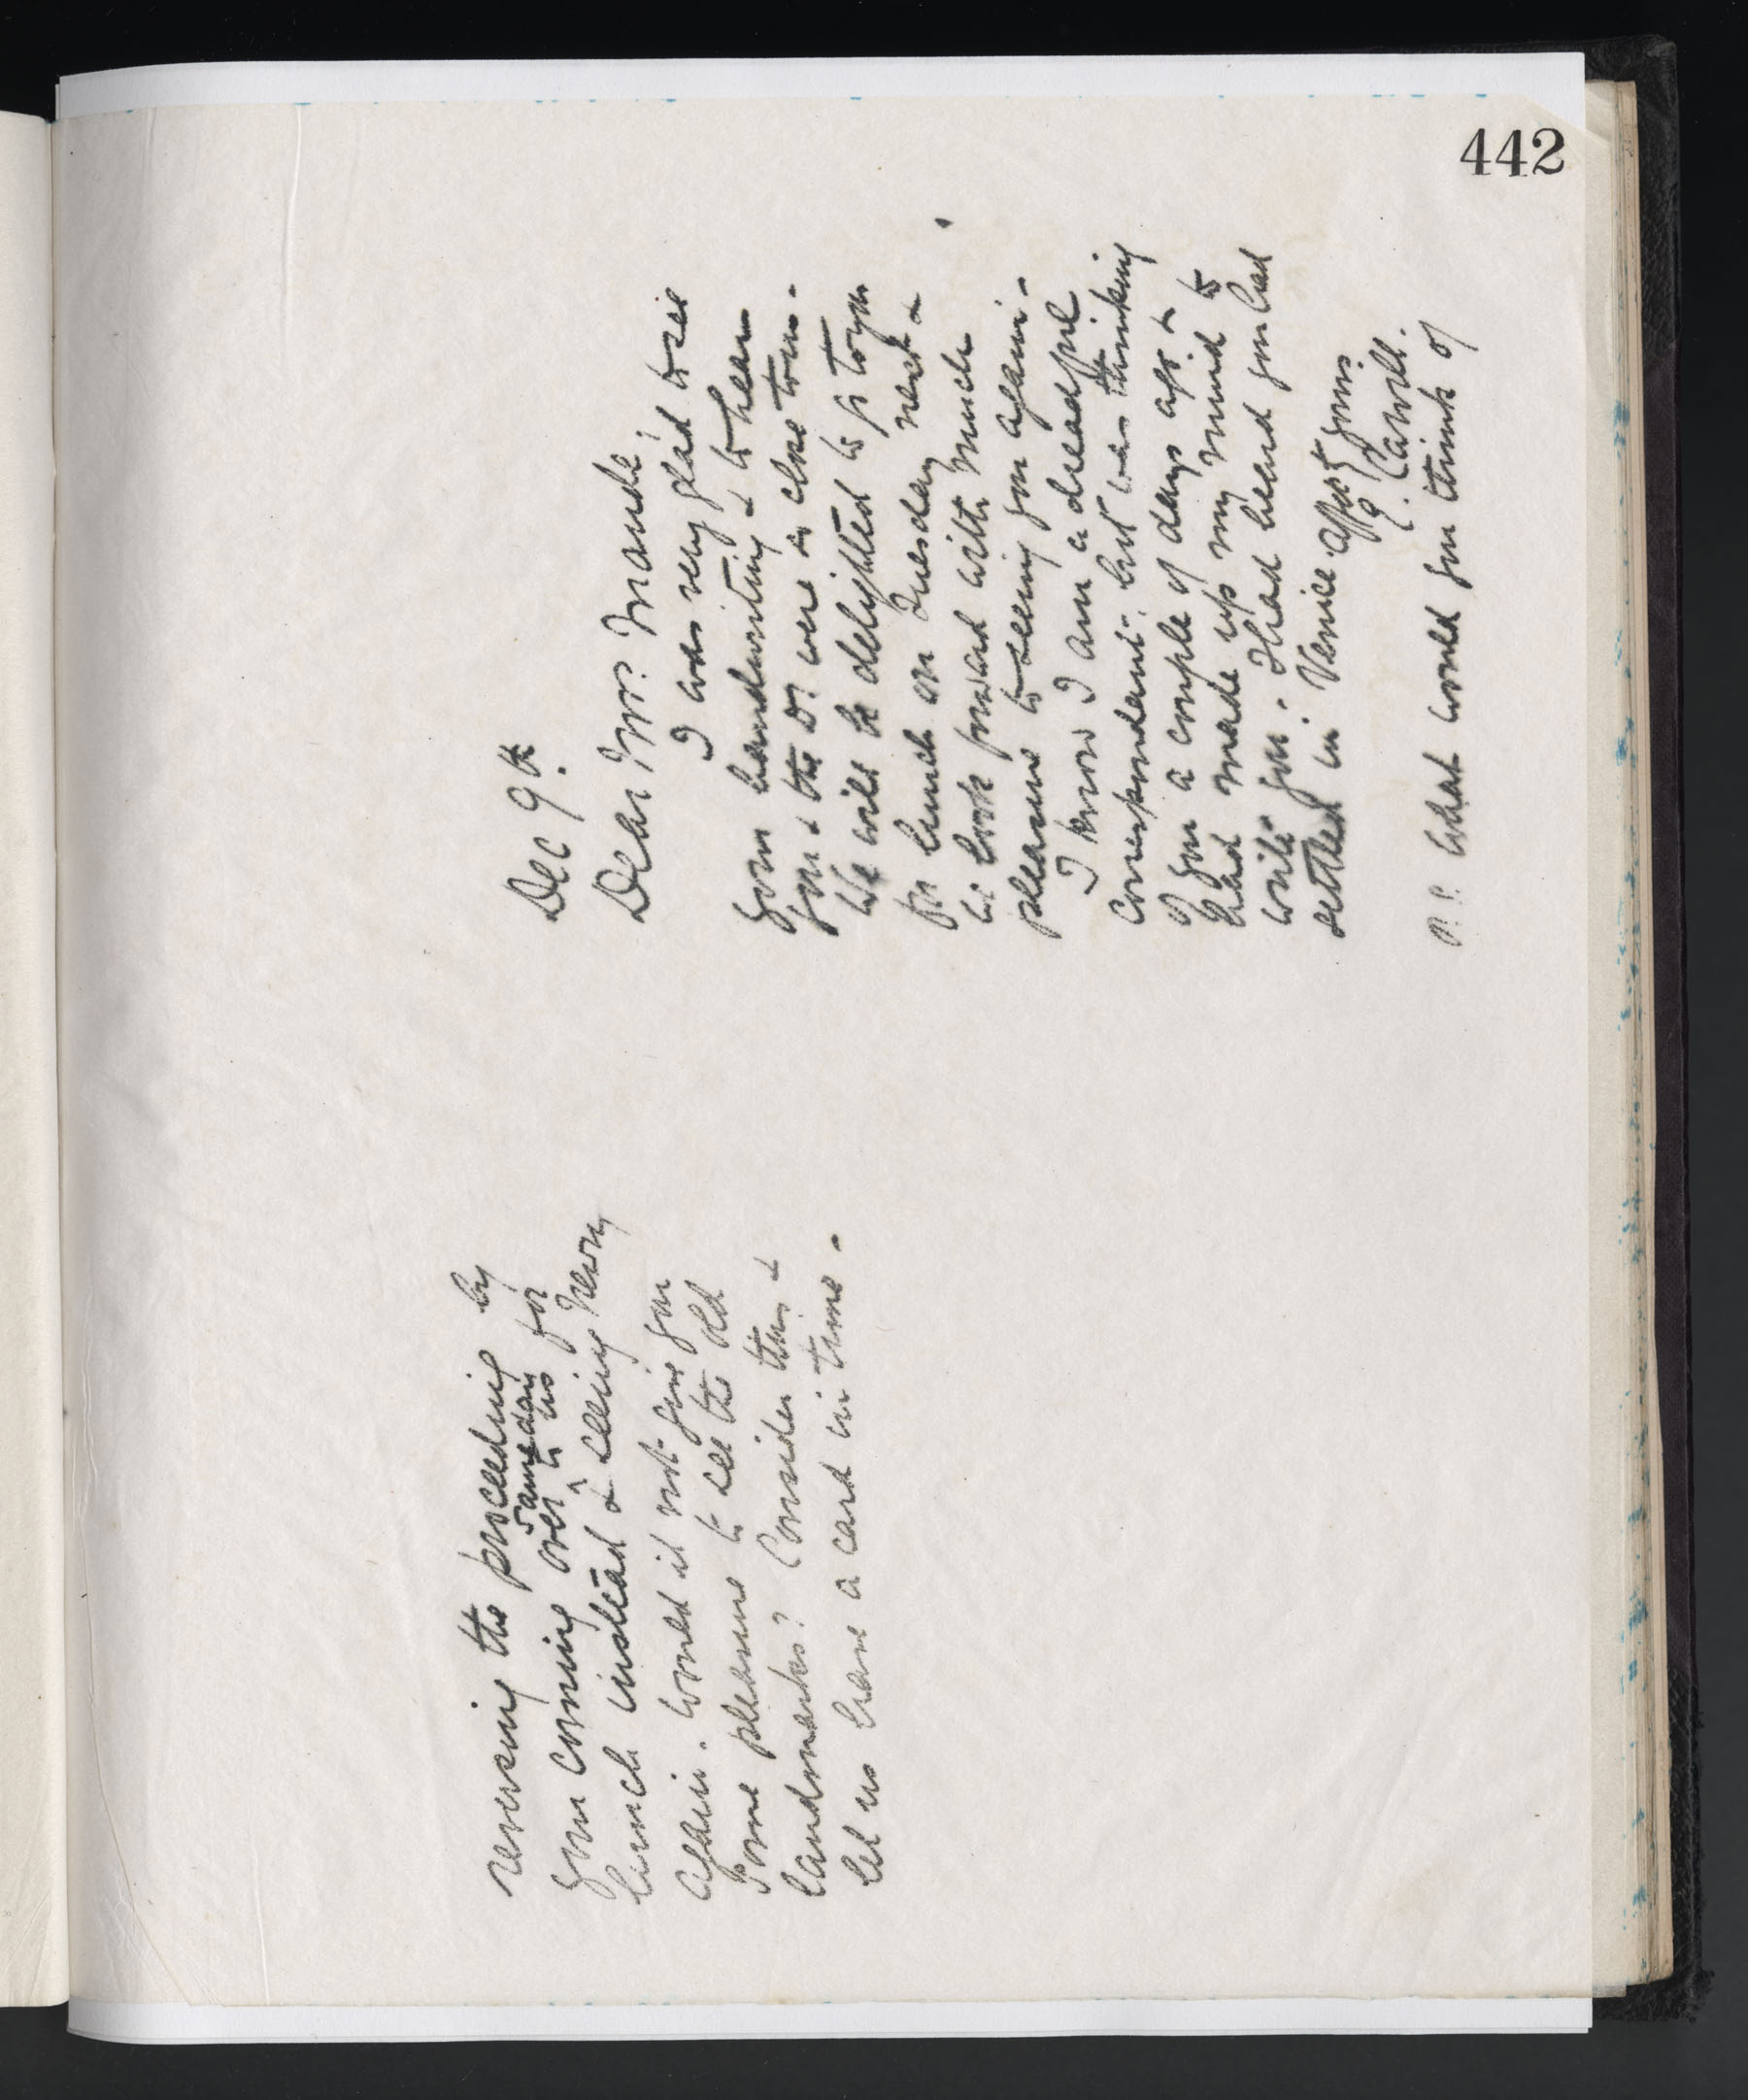 442
Dec 9th.
Dear Mrs. Maude,
I was very glad to see
your handwriting & to hear
you & the Dr were so close to us.
We will be delighted to go to you
for lunch on Tuesday next &
we look forward with much
pleasure to seeing you again.
I know I am a dreadful
correspondent but was thinking
of you a couple of days ago &
had made up my mind to
write you. I had heard you had
settled in Venice. Affect yours
E. Carvill.
P.S. What would you think of
reversing the proceeding by
your coming over ^ same day to us for
lunch instead & seeing Newry
again. Would it not give you
some pleasure to see the old
landmarks? Consider this &
let us have a card in time.